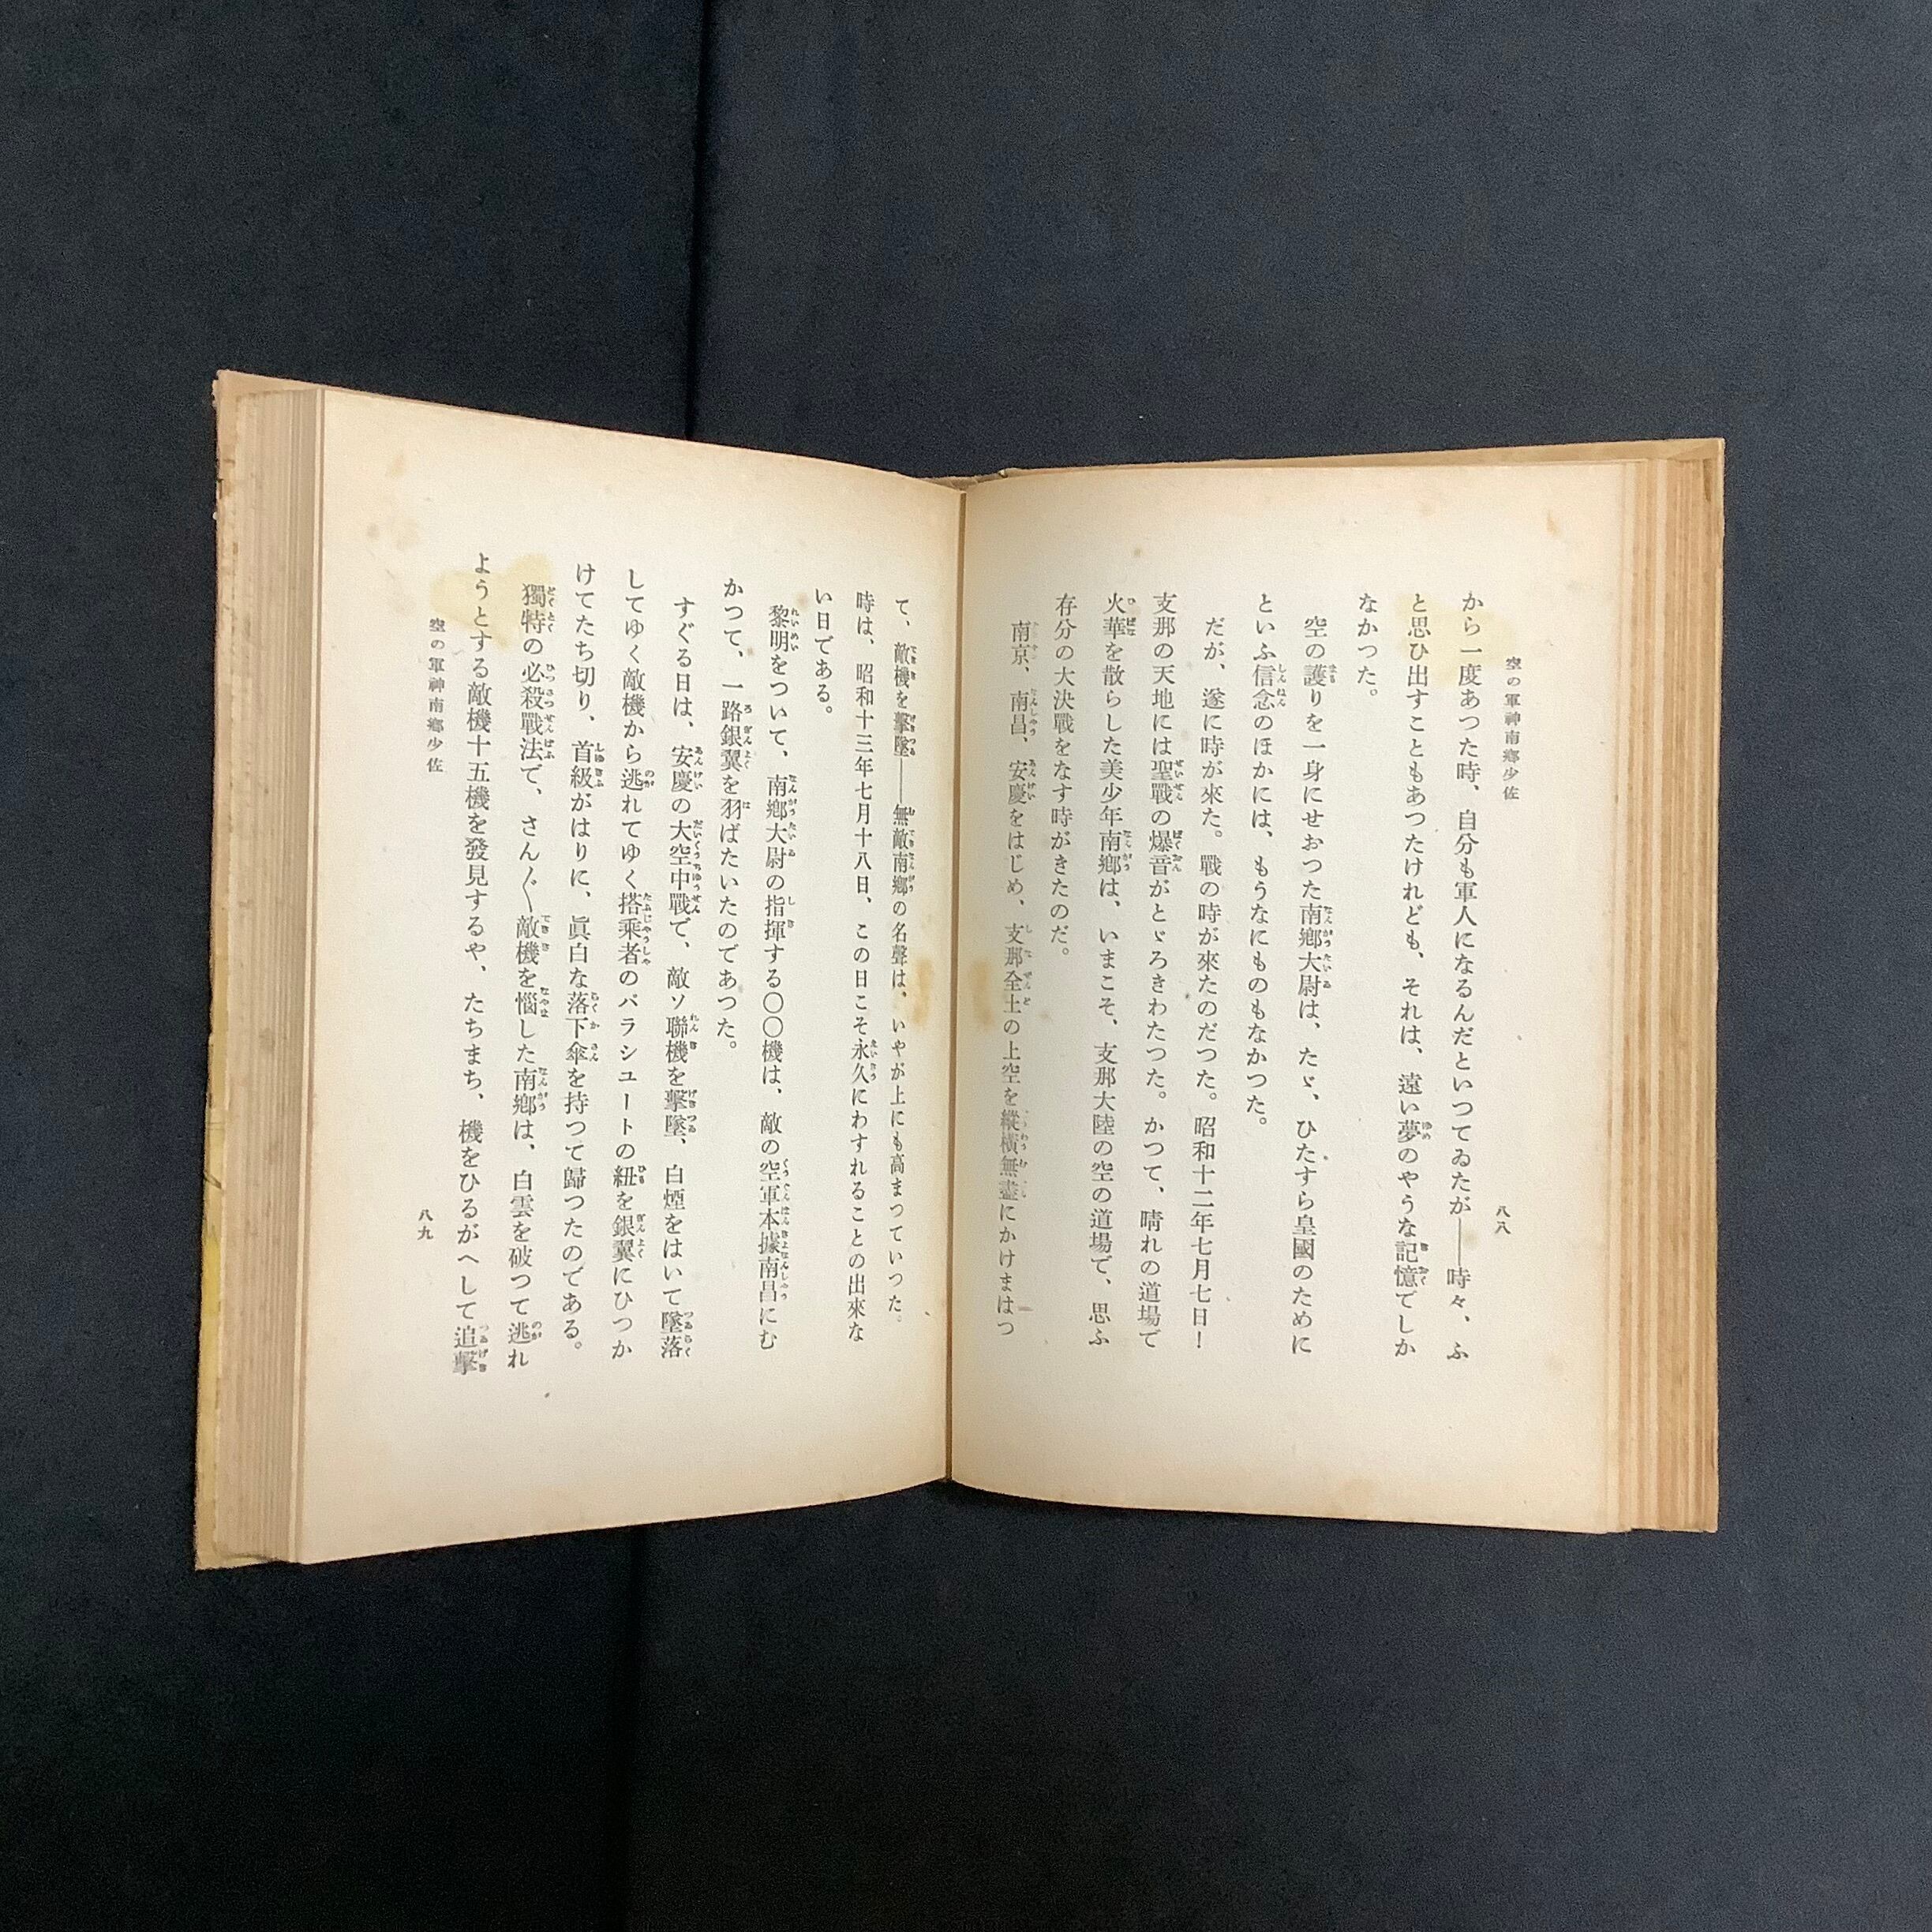 空の軍神南郷少佐
八八
から一度あつた時、自分も軍人になるんだといつてゐたが――時々、ふ
と思ひ出すこともあつたけれども、それは、遠い夢のやうな記憶でしか
なかつた。
空の護りを一身にせおつた南郷大尉は、たゞ、ひたすら皇國のために
といふ信念のほかには、もうなにものもなかつた。
だが、遂に時が來た。戰の時が來たのだつた。昭和十二年七月七日！
支那の天地には聖戰の爆音がとゞろきわたつた。かつて、晴れの道場で
火華を散らした美少年南郷は、いまこそ、支那大陸の空の道場で、思ふ
存分の大決戰をなす時がきたのだ。
南京、南昌、安慶をはじめ、支那全土の上空を縱横無盡にかけまはつ
て、敵機を擊墜――無敵南郷の名聲は、いやが上にも高まつていつた。
時は、昭和十三年七月十八日、この日こそ永久にわすれることの出來な
い日である。
黎明をついて、南郷大尉の指揮する〇〇機は、敵の空軍本據南昌にむ
かつて、一路銀翼を羽ばたいたのであつた。
すぐる日は、安慶の大空中戰で、敵ソ聯機を擊墜、白煙をはいて墜落
してゆく敵機から逃れてゆく搭乘者のパラシュートの紐を銀翼にひつか
けてたち切り、首級がはりに、眞白な落下傘を持つて歸つたのである。
獨特の必殺戰法で、さん〴〵敵機を惱した南郷は、白雲を破つて逃れ
ようとする敵機十五機を發見するや、たちまち、機をひるがへして追擊
空の軍神南郷少佐
八九